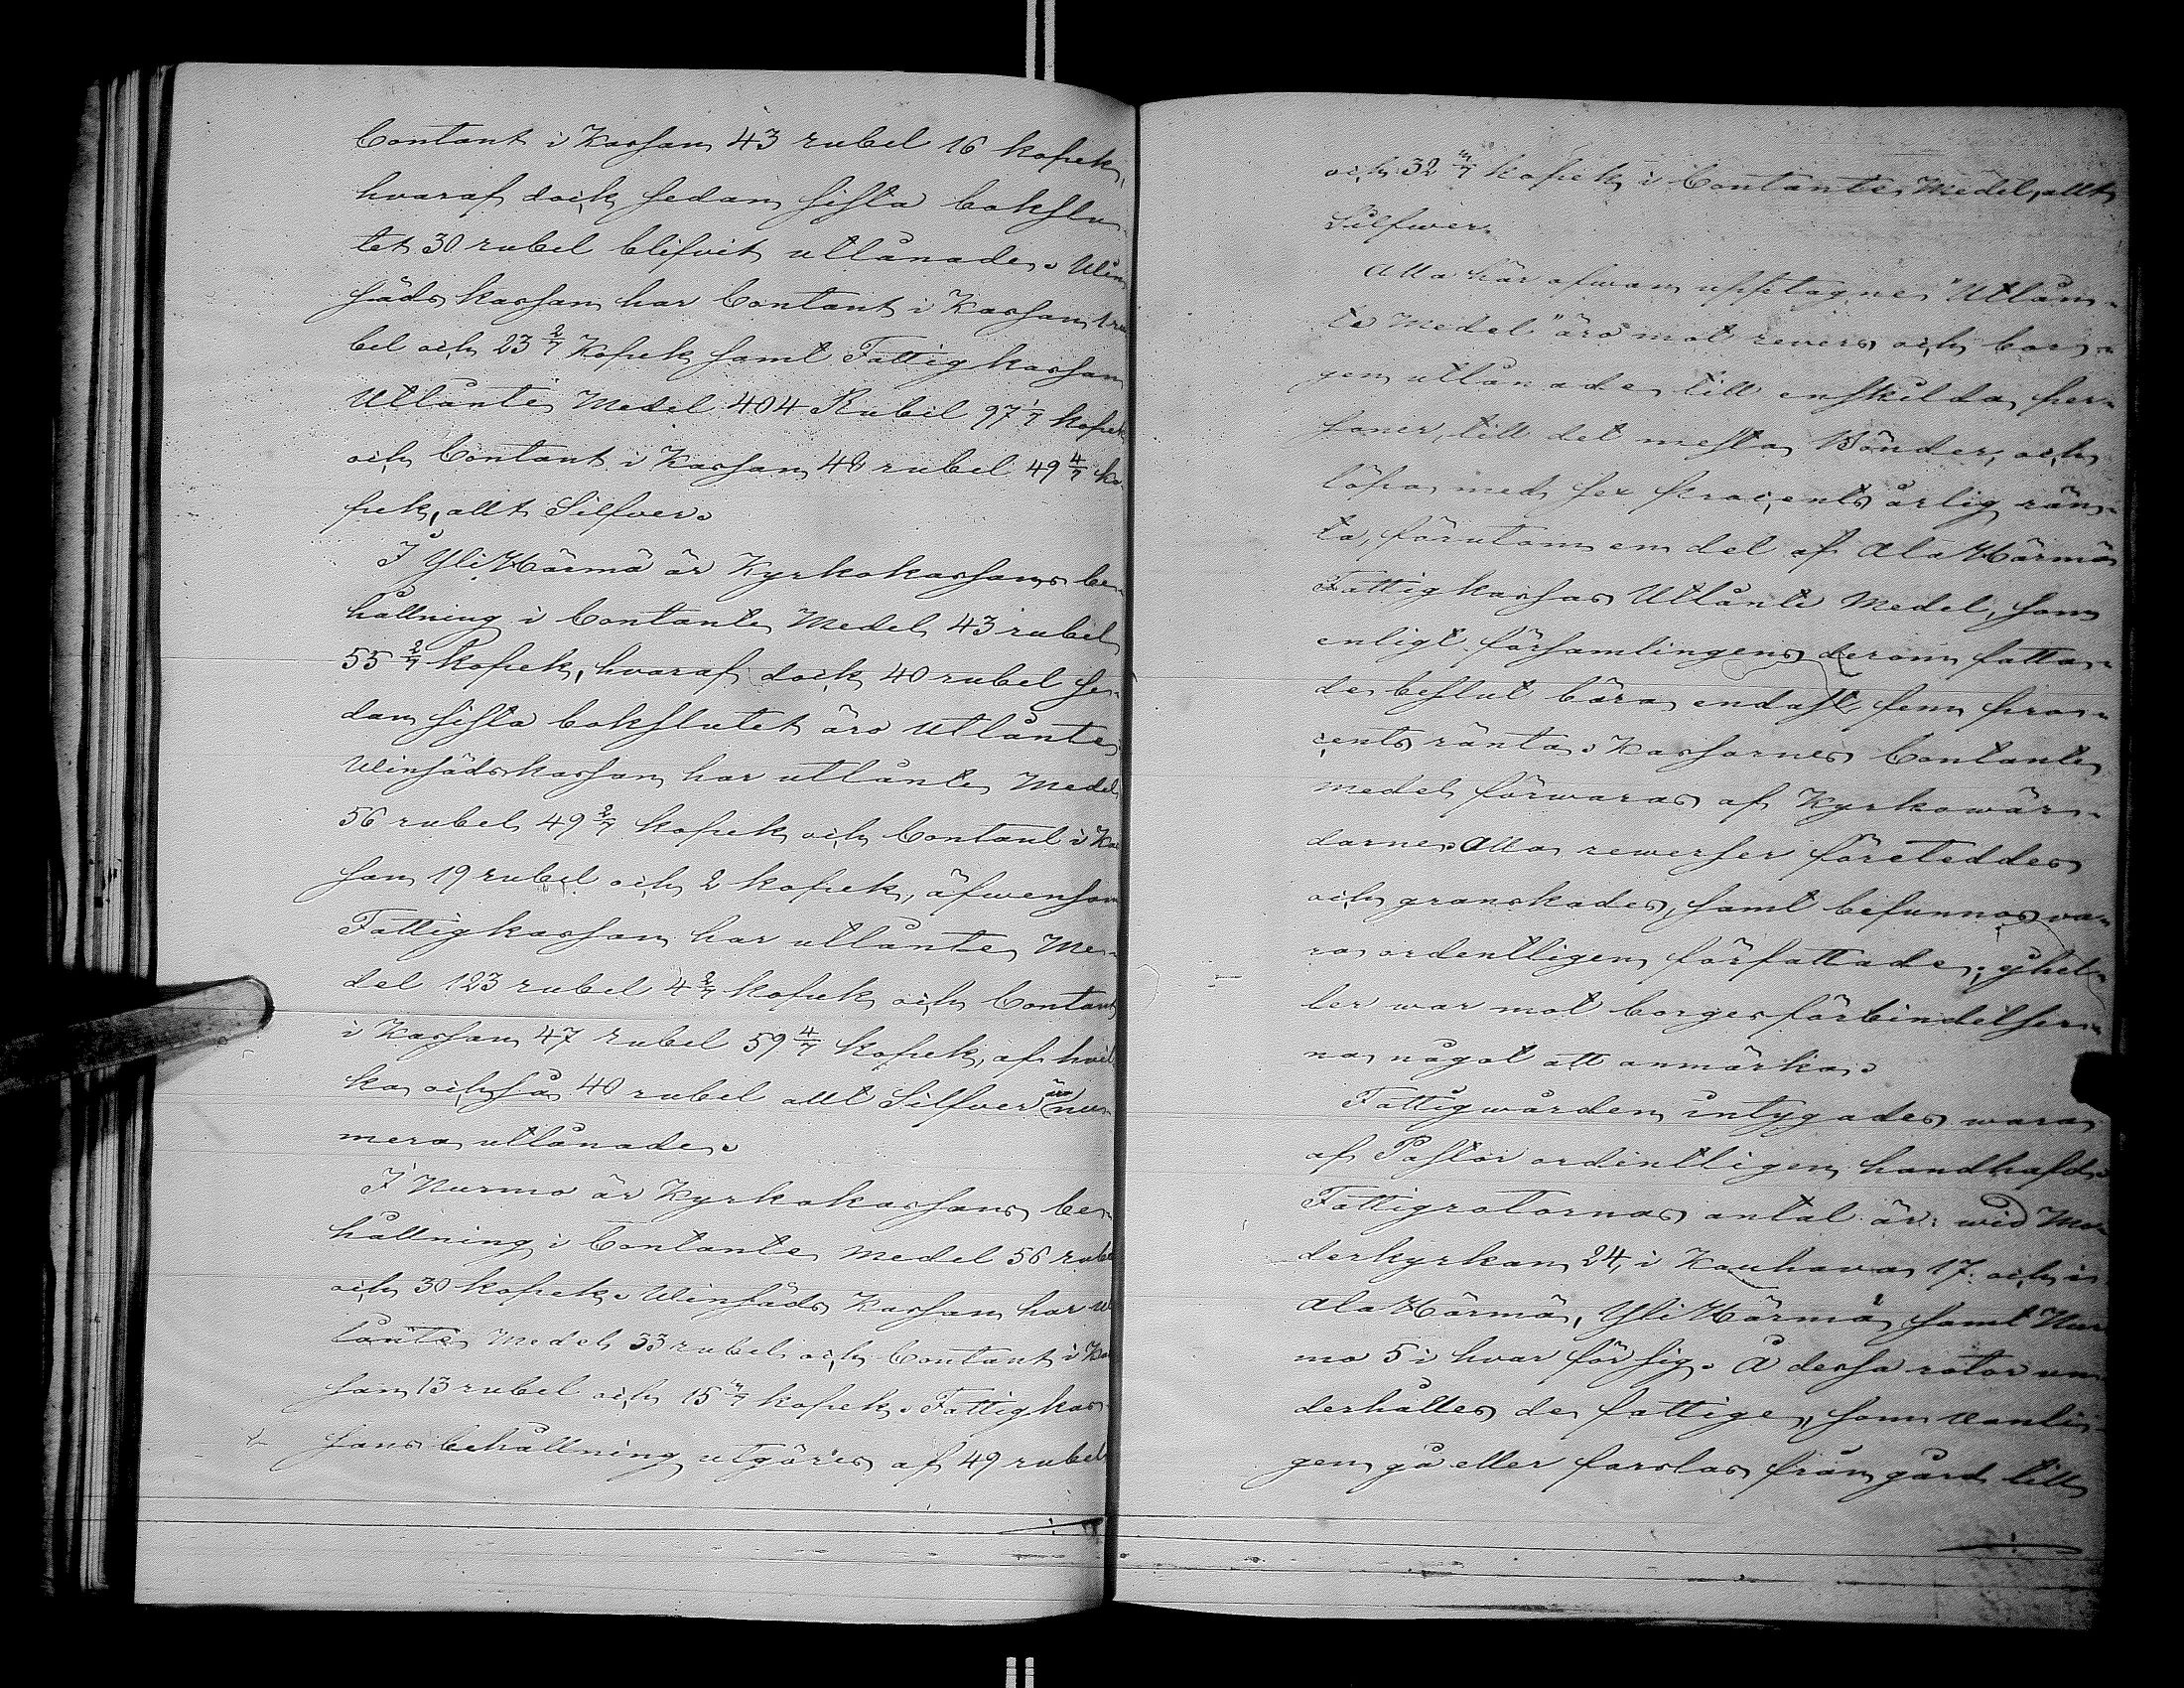 Contant i Kassan 43 rubel 16 kopek,
hvaraf dock sedan sista bokslu-
tet 30 rubel blifvit utlånade. Win
säds kassan har Contant i Kassan 1 ru
bel och 23 2/7 Kopek samt Fattigkassan
Utlånte Medel 404 Rubel 97 1/7 kopek
och Contant i Kassan 48 rubel 49 4/7 ko-
pek, allt Silfver.
I Yli Härmä är Kyrkokassans be-
hållning i Contante Medel 43 rubel
55 2/7 kopek, hvaraf dock 40 rubel se-
dan sista bokslutet äro Utlånte
Winsädskassan har utlånte Medel
56 rubel 49 2/7 kopek och Contant i Ka
san 19 rubel och 2 kopek, äfwensom
Fattigkassan har utlånte Me-
del 123 rubel 4 2/7 kopek och Contant
i Kassan 47 rubel 59 4/7 kopek, af hvil
ka också 40 rubel allt Silfver äro nu-
mera utlånade.
I Nurmo är Kyrkokassans be-
hållning i Contante Medel 56 rubel
och 30 kopek. Winsäds Kassan har ut
lånte Medel 33 rubel och Contant i Ka
san 13 rubel och 15 3/7 kopek. Fattigkas-
sans behållning utgöres af 49 rubel
och 32 3/7 kopek i Contante Medel, allt
Silfwer.
Alla här ofwan upptagne "Utlån-
te Medel" äro mot revers och bor-
gen utlånade till enskilda per-
soner, till det mesta Bönder, och
löpa med sex procents årlig rän-
ta, förutom en del af Ala Härmä
Fattigkassas Utlånte Medel, som
enligt församlingens derom fatta-
de beslut bära endast fem pro-
cents ränta. Kassornes Contante
medel förwaras af Kyrkowär-
darne. Alla rewerser företeddes
och granskades, samt befunnos va-
ra ordentligen författade, ej hel-
ler war mot borgesförbindelser-
na något att anmärka.
Fattigwården intygades wara
af Pastor ordentligen handhafd.
Fattigrotornas antal är: wid Mo-
derkyrkan 24, i Kauhava 17. och i
Ala Härmä, Yli Härmä samt Nur
mo 5 i hvar för sig. Å dessa rotor un-
derhålles de fattige, som vanli-
gen gå eller forslas från gård till